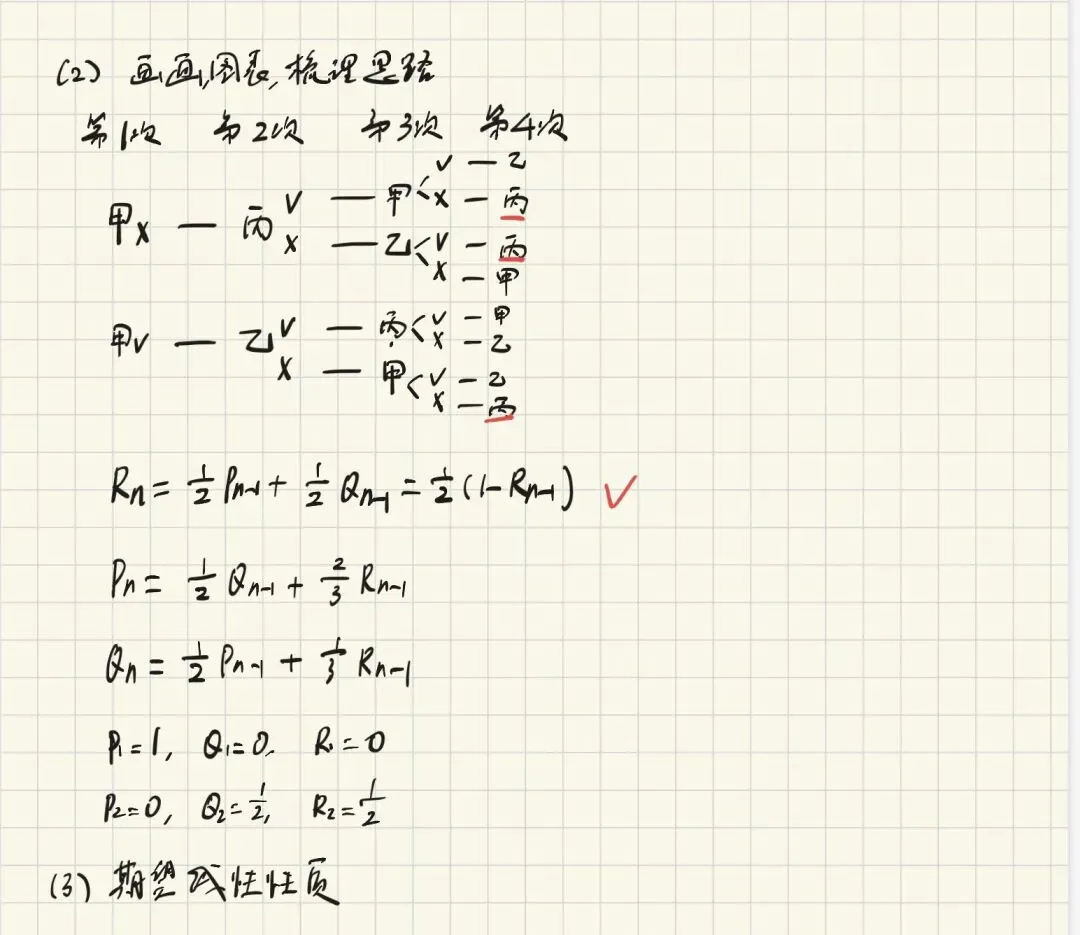 (2) 画画图表,梳理思路
第1次 第2次 第3次 第4次
√ — 乙
甲x — 丙 √ — 甲 < x — 丙
x — 乙 < √ — 丙
x — 甲
甲√ — 乙 √ — 丙 < √ — 甲
x — 乙
x — 甲 < √ — 乙
x — 丙
Rn = 1/2 Pn-1 + 1/2 Qn-1 = 1/2 (1 - Rn-1) √
Pn = 1/2 Qn-1 + 2/3 Rn-1
Qn = 1/2 Pn-1 + 1/3 Rn-1
P1 = 1, Q1 = 0, R1 = 0
P2 = 0, Q2 = 1/2, R2 = 1/2
(3) 期望线性性质